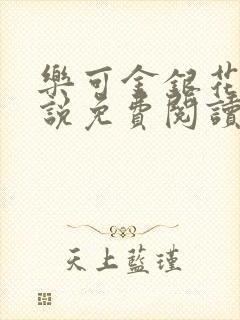 樂可金銀花
說免費閱讀
天上藍瑾